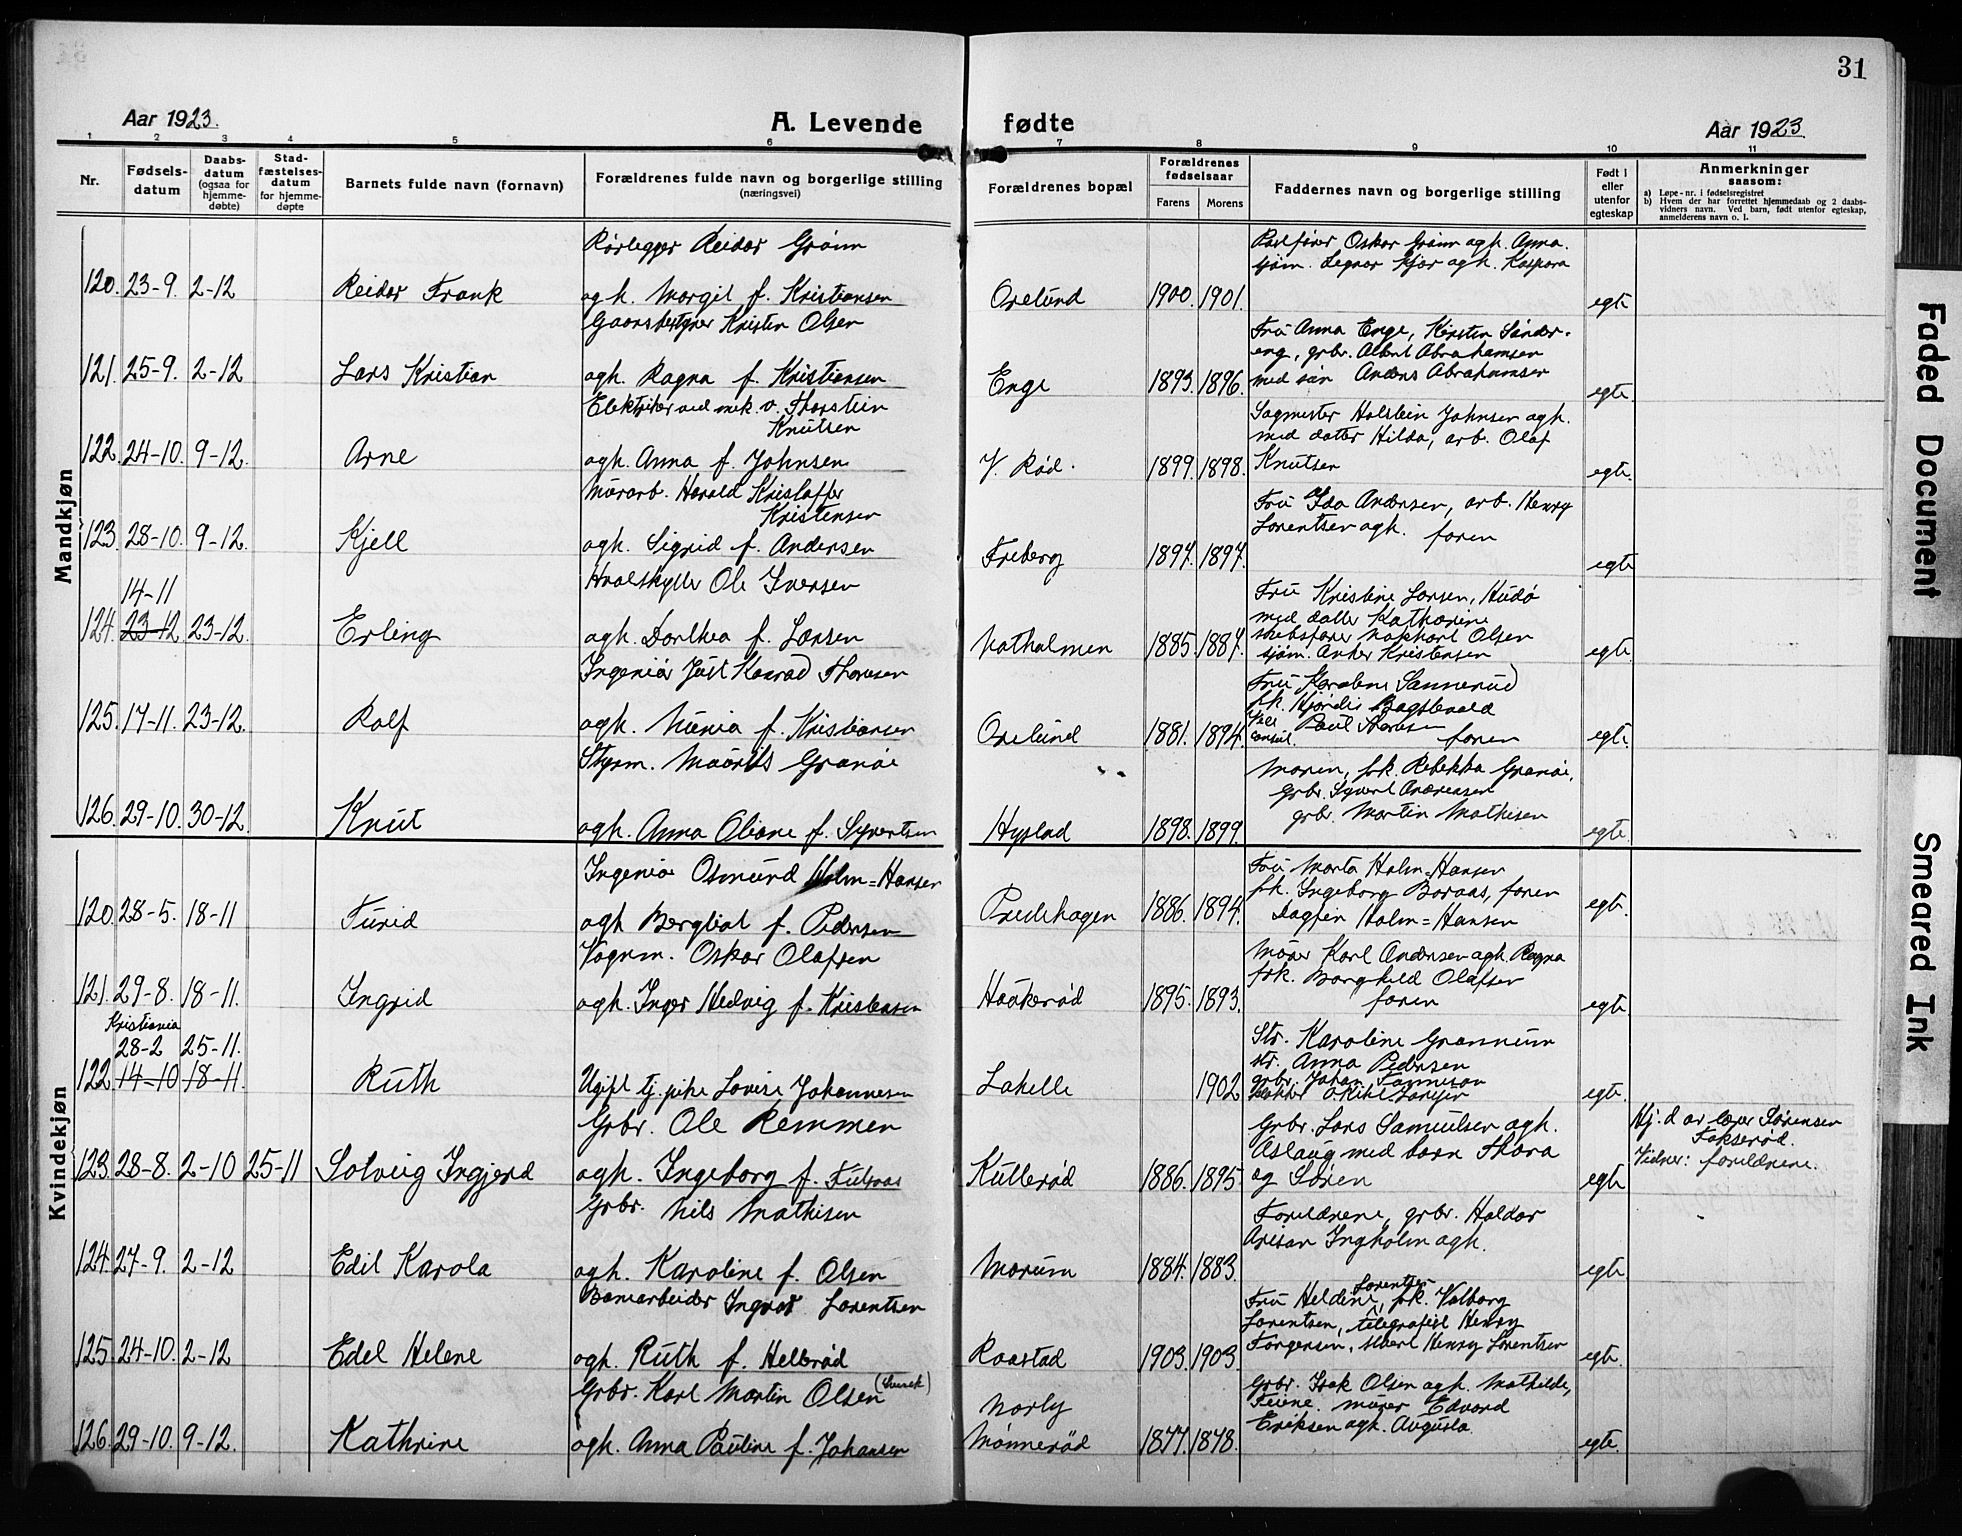 31
Aar 1923.
A. Levende fødte
Aar 1923.
1 2 3 4 5 6 7 8 9 10 11
Nr.
Fødsels-
datum
Daabs-
datum
(ogsaa for
hjemme-
døbte)
Stad-
fæstelses-
datum
for hjemme-
døpte
Barnets fulde navn (fornavn)
Forældrenes fulde navn og borgerlige stilling
(næringsvei)
Forældrenes bopæl
Forældrenes
fødselsaar
Farens
Morens
Faddernes navn og borgerlige stilling
Født i
eller
utenfor
egteskap
Anmerkninger
saasom:
a) Løpe-nr. i fødselsregistret
b) Hvem der har forrettet hjemmedaab og 2 daabs-
vidners navn. Ved barn, født utenfor egteskap,
anmelderens navn o. l.
Mandkjøn
120. 23-9. 2-12
Reidar Frank
Rørlegger Reidar Grønn
agh. Margit f. Kristiansen
Orelund
1900. 1901.
Oskar Grønn agh. Anna.
sjøm. Kjær agh. Kaspara
egte
121. 25-9. 2-12
Lars Kristian
Gaarsbestyrer Kristen Olsen
agh. Ragna f. Kristiansen
Enge
1893. 1896.
Fru Anna Enge, Kirsten Sønder-
eng, grbr. Albert Abrahamsen
med søn Anders Abrahamsen
egte.
122. 24-10. 9-12.
Arne
Elektriker ved mek. v. Thorstein
Knutsen
agh. Anna f. Johnsen
V. Rød.
1899. 1898.
Sagmester Halstein Johnsen agh.
med datter Hilda, arb. Olaf
Knutsen
egte.
123. 28-10. 9-12.
Kjell
Murarb. Harald Kristoffer
Kristensen
agh. Sigrid f. Andersen
Freberg
1897. 1897.
Fru Ida Andersen, arb. Henry
Lorentsen agh. faren
egte
14-11
124. 23-12 23-12.
Erling
Hvalskytte Ole Iversen
agh. Dorthea f. Larsen
Natholmen
1885. 1887.
Fru Kristine Larsen, Hudø
med datter Katharine
skibsfører Olsen
sjøm. Anker Kristensen
egte.
125. 17-11. 23-12.
Rolf
Ingeniør Just Konrad Thoresen
agh. f. Kristiansen
Orelund
1881. 1894.
Fru Karoline Sannerud
frk. Hjørdis
consul. Paul Thoresen faren
egte.
126. 29-10. 30-12.
Knut
Styrm. Maurits Granøe
agh. Anna Oliane f. Syvertsen
Hystad
1898. 1899.
Moren, frk. Rebekka Granøe,
Grbr. Syvert Andreassen
grbr. Martin Mathisen
egte.
Kvindekjøn
120. 28-5. 18-11
Turid
Ingeniør Osmund Holm=Hansen
agh Bergliot f. Pedersen
Preståhagen
1886. 1894.
Fru Marta Holm=Hansen
frk. Ingeborg Boraas, faren
Dagfin Holm=Hansen
egte.
121. 29-8. 18-11.
Ingrid
Vognm. Oskar Olafsen
agh. Inger Hedvig f. Kristensen
Haakerød
1895. 1893.
Murer Karl Andersen agh. Ragna
frk. Borghild Olafsen
faren
egte
Kristiania
28-2 25-11.
122. 14-10 18-11.
Ruth
Ugift tj. pike Lovise Johannesen
Lahelle
1902
Str. Karoline Grannum
str. Anna Pedersen
grbr. Johan
egte.
123. 28-8. 2-10 25-11
Solveig Ingjerd
Grbr. Ole Remmen
agh. Ingeborg f. Fulsaas
Kullerød
1886. 1895.
Grbr. Lars Samuelsen agh.
Aslaug med barn Thora
og Søren
egte
Hj. d av lærer Sørensen
Fokserød.
Vidner: forældrene.
124. 27-9. 2-12
Edil Karola
Grbr. Nils Mathisen
agh. Karoline f. Olsen
Marum
1884. 1883.
Forældrene, grbr. Haldor
Ingholm agh.
egte.
125. 24-10. 2-12
Edel Helene
Banearbeider Ingvar Lorentsen
agh. Ruth f. Hellerød
Raastad
1903. 1903.
Lorentsen
Fru Heldine, frk. Valborg
Lorentsen, telegrafist Henry
Jørgensen, Henry Lorentsen
egte.
126. 29-10. 9-12.
Kathrine
Grbr. Karl Martin Olsen (svensk)
agh. Anna Pauline f. Johansen
Norly
Mønnerød
1877. 1878.
Grbr. Isak Olsen agh. Mathilde,
Feiene. murer Edvard
Eriksen agh. Augusta
egte.
Faded Document
Smeared Ink